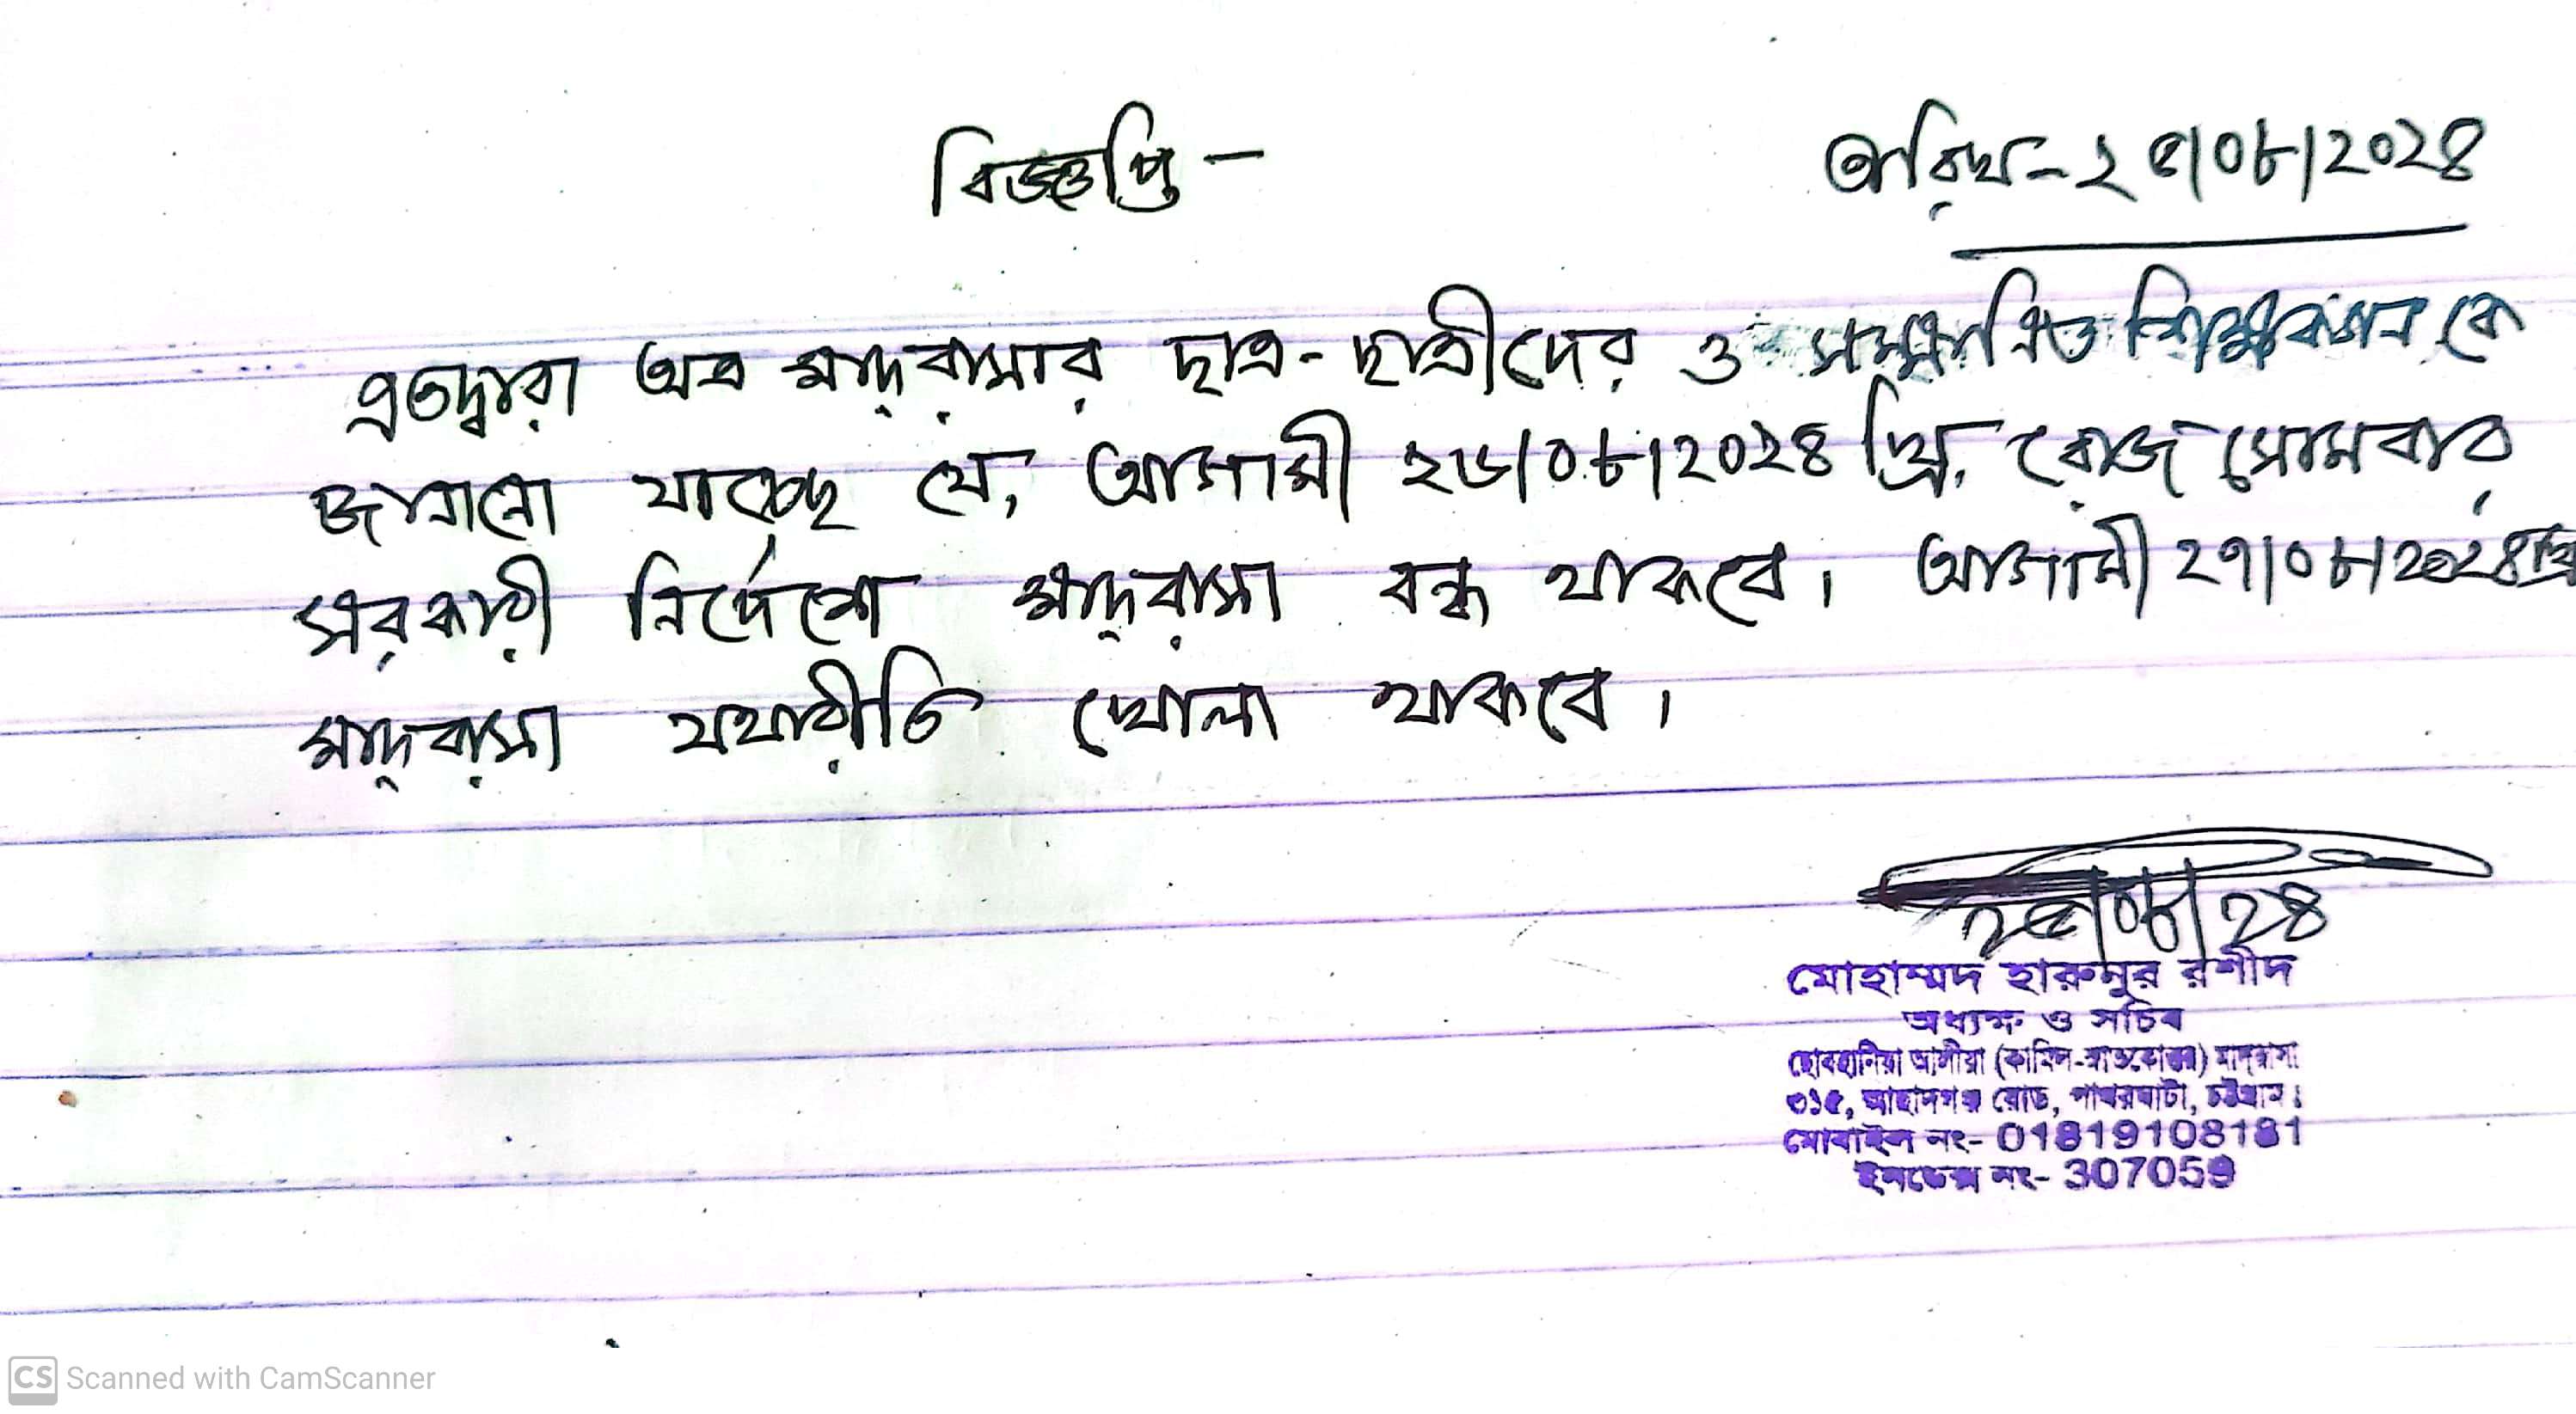 বিজ্ঞপ্তি -
তারিখ - ২৫/০৮/২০২৪
এতদ্বারা অত্র মাদ্‌রাসার ছাত্র-ছাত্রীদের ও সম্মানিত শিক্ষকগন কে
জানানো যাচ্ছে যে, আগামী ২৬/০৮/২০২৪ খ্রি. রোজ সোমবার
সরকারী নির্দেশে মাদ্‌রাসা বন্ধ থাকবে। আগামী ২৭/০৮/২০২৪ খ্রি
মাদ্‌রাসা যথারীতি খোলা থাকবে।
২৫/০৮/২৪
মোহাম্মদ হারুনুর রশীদ
অধ্যক্ষ ও সচিব
ছোবহানিয়া আলীয়া (কামিল-স্নাতকোত্তর) মাদ্‌রাসা
৩১৫, আছাদগঞ্জ রোড, পাথরঘাটা, চট্টগ্রাম।
মোবাইল নং- 01819108181
ইনডেক্স নং- 307059
CS Scanned with CamScanner